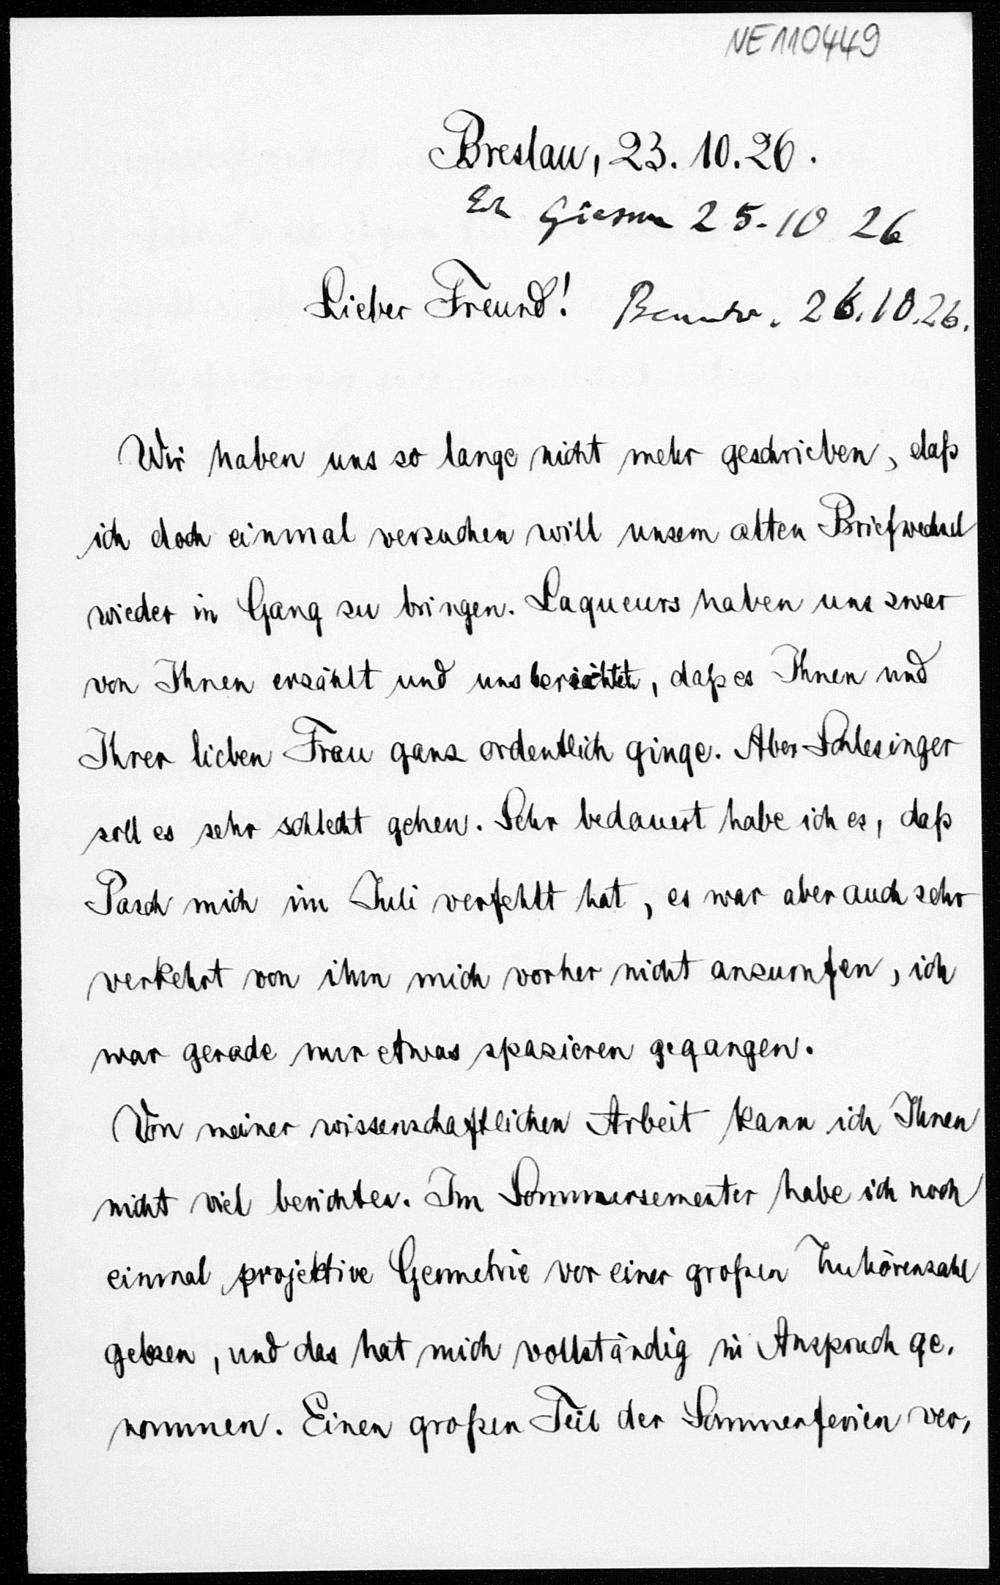 NE110449
Breslau, 23. 10. 26.
Eh Giessen 25-10 26
Lieber Freund! Beantw. 26.10.26.
Wir haben uns so lange nicht mehr geschrieben, daß
ich doch einmal versuchen will unsern alten Briefwechsel
wieder in Gang zu bringen. Laqueurs haben uns zwar
von Ihnen erzählt und uns berichtet, daß es Ihnen und
Ihrer lieben Frau ganz ordentlich ginge. Aber Schlesinger
soll es sehr schlecht gehen. Sehr bedauert habe ich es, daß
Pasch mich im Juli verfehlt hat, es war aber auch sehr
verkehrt von ihm mich vorher nicht anzurufen, ich
war gerade nur etwas spazieren gegangen.
Von meiner wissenschaftlichen Arbeit kann ich Ihnen
nicht viel berichten. Im Sommersemester habe ich noch
einmal projektive Geometrie vor einer großen Zuhörerzahl
gelesen, und das hat mich vollständig in Anspruch ge-
nommen. Einen großen Teil der Sommerferien ver-